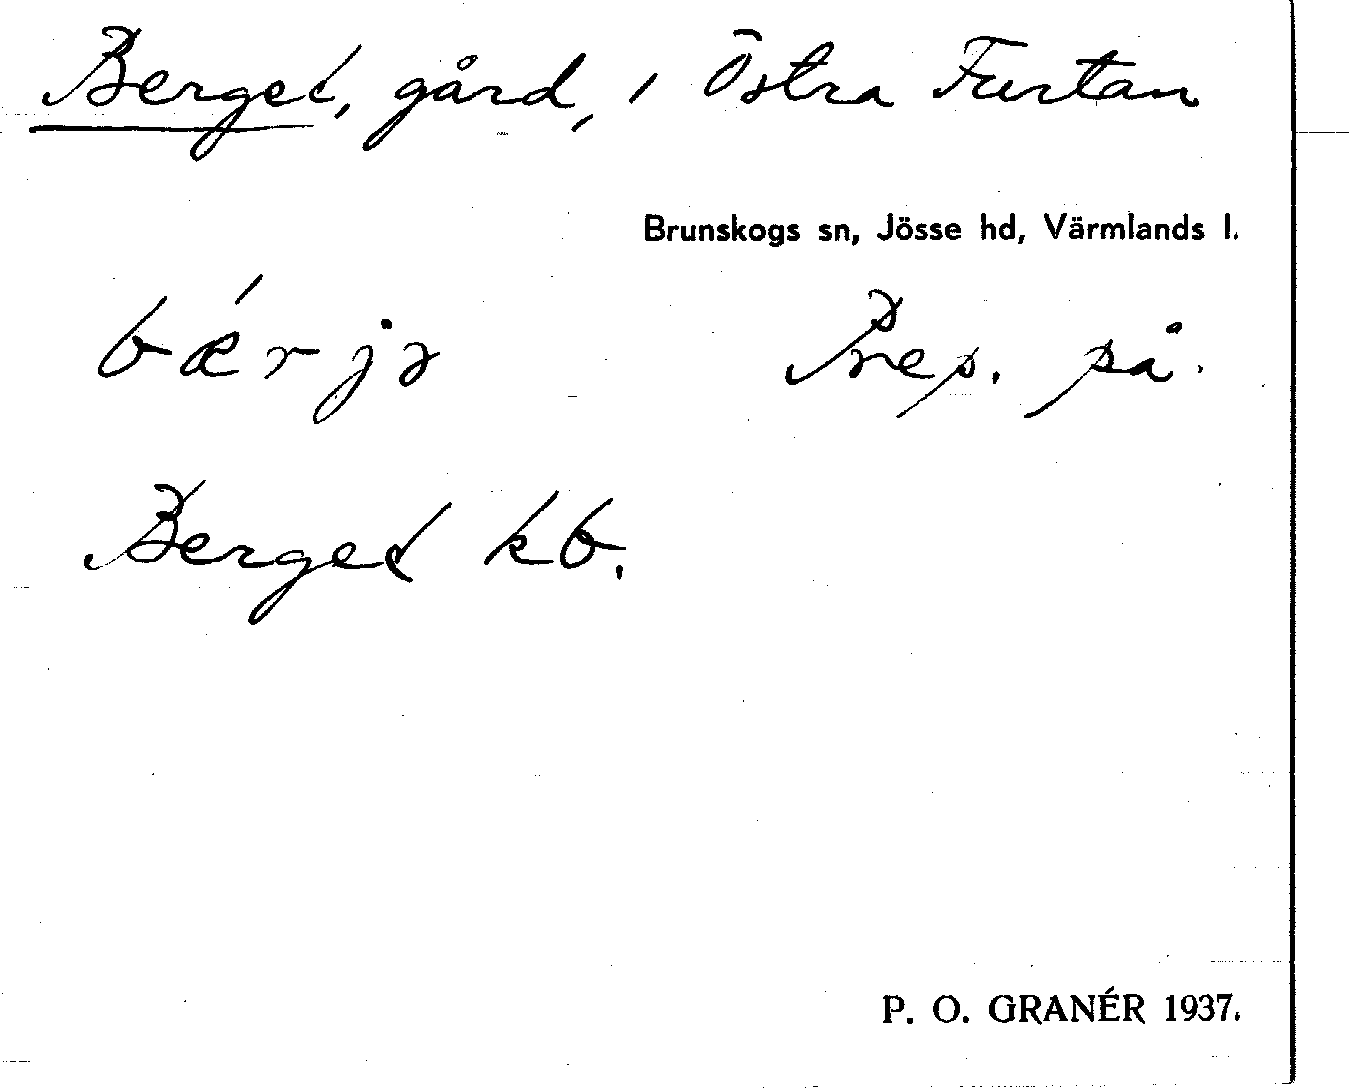 Berget, gård, i Östra Furtan
Brunskogs sn, Jösse hd, Värmlands l.
bǽrjə Prep. på.
Berget kb.
P. O. GRANÉR 1937.